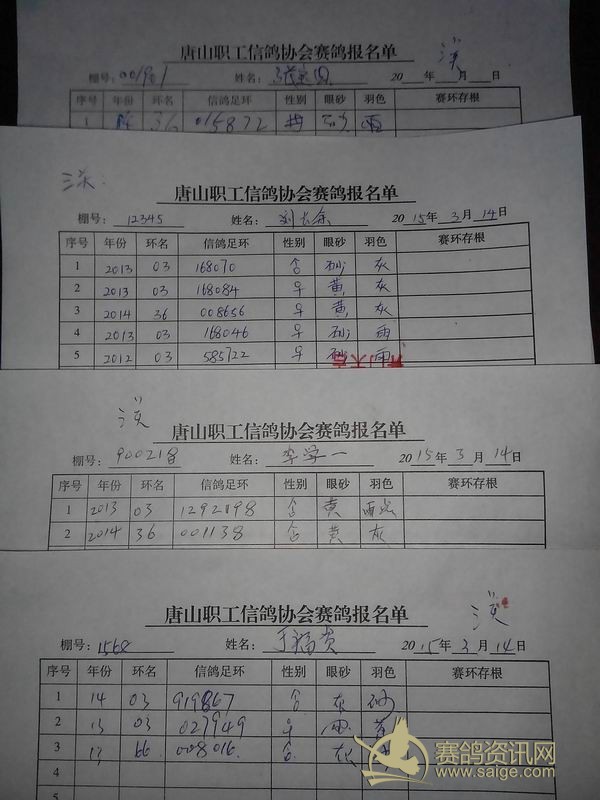 唐山职工信鸽协会赛鸽报名单
棚号: 姓名: 20 年 月 日
序号 年份 环名 信鸽足环 性别 眼砂 羽色 赛环存根
1 36 015872 砂 雨
唐山职工信鸽协会赛鸽报名单
棚号: 12345 姓名: 刘长余 2015年3月14日
序号 年份 环名 信鸽足环 性别 眼砂 羽色 赛环存根
1 2013 03 168070 砂 灰
2 2013 03 168084 黄 灰
3 2014 36 008656 黄 灰
4 2013 03 168046 砂 雨
5 2012 03 585722 砂 雨
唐山职工信鸽协会赛鸽报名单
棚号: 900218 姓名: 李学一 2015年3月14日
序号 年份 环名 信鸽足环 性别 眼砂 羽色 赛环存根
1 2013 03 1292198 黄
2 2014 36 001138 黄 灰
唐山职工信鸽协会赛鸽报名单
棚号: 1568 姓名: 于福贵 2015年3月14日
序号 年份 环名 信鸽足环 性别 眼砂 羽色 赛环存根
1 14 03 919867 灰 砂
2 13 03 027949 雨 黄
3 13 66 008016 灰
4
5
赛鸽资讯网
www.saige.com